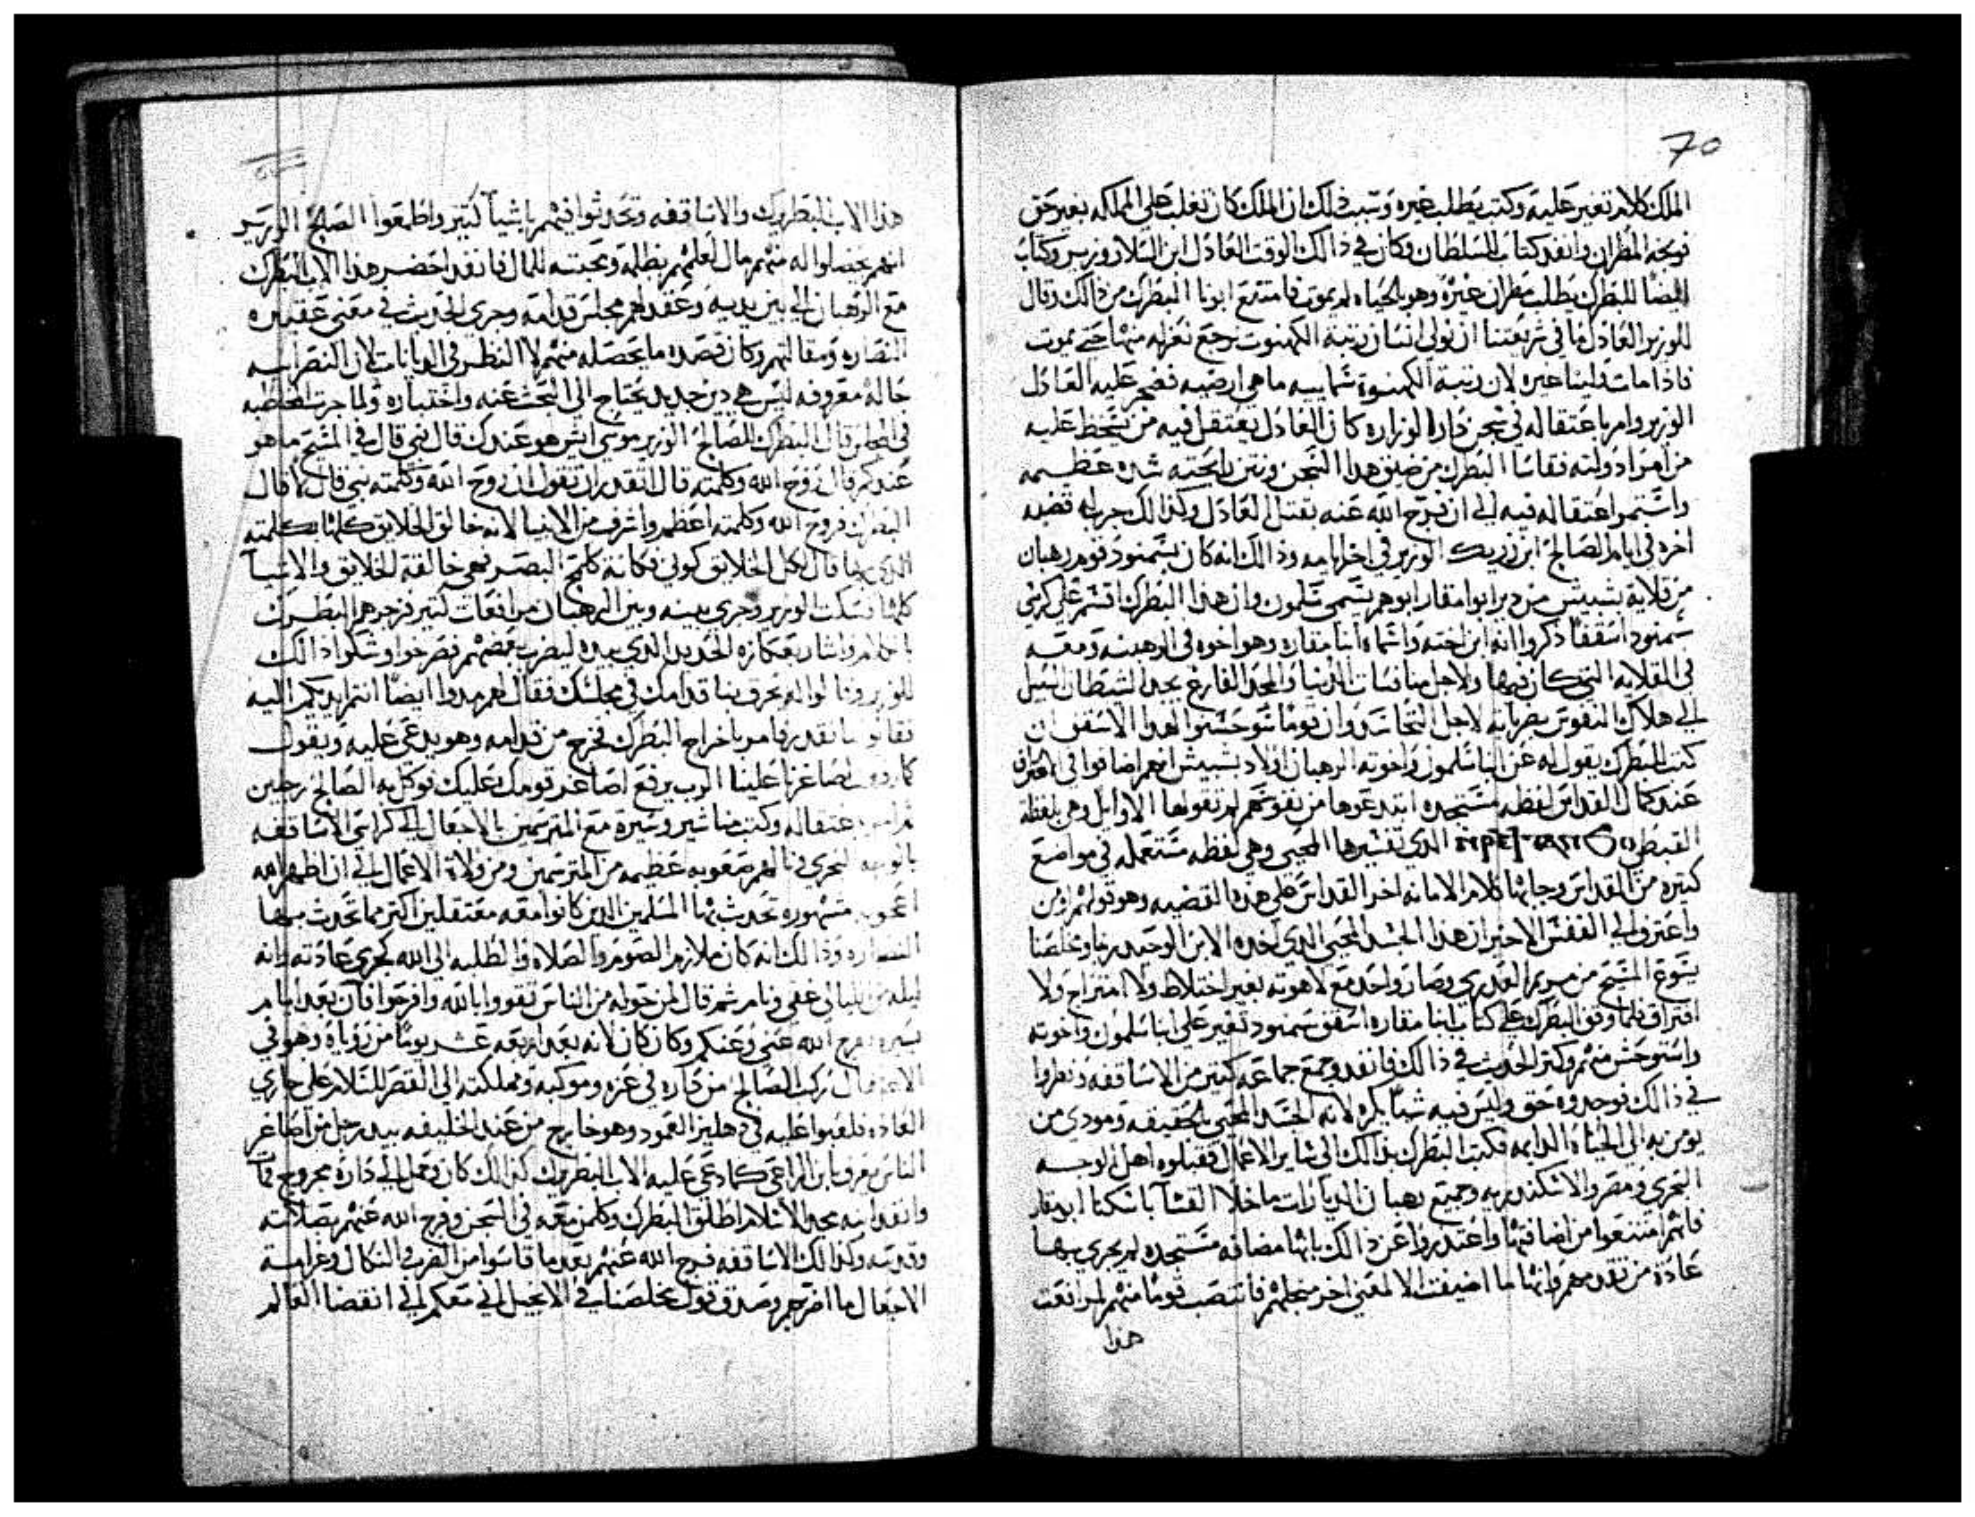 70
الملك كلام تغير عليه وكتب يطلب غيره وسبب ذلك ان الملك كان تغلب علي المملكه بغير حق
فوبخه المطران وانفد كتاب للسلطان وكان في ذالك الوقت العادل ابن السلار وزير وكتاب
ايضا للبطرك يطلب مطران غيره وهو بالحياه لم يموت فامتنع ابونا البطرك من ذالك وقال
للوزير العادل ما في شريعتنا ان نولي انسان رتبة الكهنوت نرجع نعزله منها حتي يموت
فاذا مات ولينا غيره لان رتبة الكهنوة شماييه ما هي ارضيه فضجر عليه العادل
الوزير وامر باعتقاله في سجن داره الوزاره كان العادل يعتقل فيه من سخط عليه
من امرا دولته فقاسا البطرك من ضيق هدا السجن ونتن رايحته شده عظيمه
واستمر اعتقاله فيه الي ان فرج الله عنه بقتل العادل وكدالك جرا له قضيه
اخره في ايام الصالح ابن زريك الوزير في اخر ايامه وذالك انه كان بسمنود قوم رهبان
من قلاية بشيش من دير ابوا مقار ابوهم يسمي سلمون وان هدا البطرك اقسم علي كرسي
سمنود اسقفا ذكروا انه ابن اخته واسماه انبا مقاره وهو اخوه في الرهبنه ومعه
في القلايه التي كان فيها ولاجل منافسات الدنيا والمجد الفارغ يجد الشيطان السبيل
الي هلاك النفوس لاجل وان قوما توحشوا لهدا الاسقف ان
كتب للبطرك يقول له عن انبا سلمون واخوته الرهبان اولاد بشيش انهم اضافوا في
عند كمال القداس لفظه مستجده ابتدعوها من نفوسهم لم تقولها الاوايل وهي بلفظه
القبطي الدي تفسيرها المحيي وهي لفظه مستعمله في مواضع
كتيره من القداس وجاتها كلام الامانه اخر القداس علي هده القضيه وهو قولهم اومن
واعترف الي النفس الاخير ان هدا الجسد المحيي الدي اخده الابن الوحيد ربنا ومخلصنا
يسوع المسيح من مريم العدري وصار واحد مع لاهوته بغير اختلاط ولا امتزاج ولا
افتراق فلما وقف البطرك علي كتاب انبا مقاره اسقف سمنود تغير علي انبا سلمون واخوته
واستوحش منهم وكتر الحديث في ذالك فانفد وجمع جماعه كتير من الاساقفه ونظروا
في ذالك فوجدوه حق وليس فيه شيا يكره لانه الجسد المحيي بالحقيقه ومودي من
يومن به الي الحياه الدايمه فكتب البطرك بدالك الي ساير الاعمال فقبلوه اهل الوجه
البحري ومصر والاسكندريه وجميع رهبان الديارات ما خلا القسا باسكنا ابو مقار
فانهم امتنعوا من اضافتها واعتدروا عن ذالك بانها مضافه مستجده لم يجري بها
عادة من تقدمهم وانها ما اضيفت الا لمعني اخر من اجلهم فانتصب قوما منهم لمرافعت
هدا
هدا الاب البطريرك والاساقفه وتحدثوا فيهم باشيآ كتير واطمعوا الصالح الوزير
انهم يحصلوا له منهم مال لعلمهم بظلمه ومحبته للمال فانفد احضر هدا الاب البطرك
مع الرهبان الي بين يديه وعقد لهم مجلس قدامه وجري الحديث في معني عقيده
النصاره ومقالتهم وكان قصده ما يحصله منهم لا النظر في الديانات لان النصرانيه
حاله معروفه ليس هي دين جديد يحتاج الي البحث عنه واختباره ولما جرت المخاطبه
في المجلس قال البطرك للصالح الوزير موسي ايش هو عندك قال نبي قال فالمسيح ما هو
عندكم قال روح الله وكلمته قال اتقدر ان تقول ان روح الله وكلمته نبي قال لا قال
البطرك فروح الله وكلمته اعظم واشرف من الانبيا لانه خالق الخلايق كلها بكلمته
الدي بها قال لكل الخلايق كوني فكانت كلمح البصر فهي خالقة الخلايق والاشيآ
كلها فسكت الوزير وجري بينه وبين الرهبان مرافعات كتير فزجرهم البطرك
بالكلام واشار بعكازه الحديد الدي بيده ليضرب بعضهم فصرخوا وشكوا ذالك
للوزير وقالوا له يخرق بنا قدامك في مجلسك فقال لهم مدوا ايضا انتم ايديكم اليه
فقالوا ما نقدر فامر باخراج البطرك فخرج من قدامه وهو يدعي عليه ويقول
كما رفع اصاغرنا علينا الرب يرفع اصاغر قومك عليك فوكل به الصالح رجلين
تم امر باعتقاله وكتب مناشير وسيره مع المترسمين بالاحتفال الي كراسي الاساقفه
بالوجه البحري فنالهم صعوبه عظيمه من المترسمين ومن ولاة الاعمال الي ان اظهر الله
اعجوبه مشهوره تحدث بها المسلمين الدين كانوا معه معتقلين اكتر مما تحدت بها
النصاره وذالك انه كان ملازم الصوم والصلاه والطلبه الي الله كجري عادته وانه
ليله من الليالي غفي ونام تم قال لمن حوله من الناس تقووا بالله وافرحوا فان بعد ايام
يسيره يفرج الله عني وعنكم وكان كان لانه بعد اربعه عشر يوما من روياه وهو في
الاعتقال ركب الصالح من داره في عزه وموكبه ومملكته الي القصر للسلام علي جاري
العاده فلعبوا عليه في دهليز العمود وهو خارج من عند الخليفه بيد رجل من اصاغر
الناس يعرف بابن الراعي كما دعي عليه الاب البطريرك كدالك كان وحمل الي داره مجروح فمات
وانفد ابنه مجد الاسلام اطلق البطرك وكلمن معه في السجن وفرج الله عنهم بصلاته
وقدوسته وكدالك الاساقفه فرج الله عنهم بعد ما قاسوا من الضرب والنكال وغرامه
الاحتفال ما افرحهم وصدق قول مخلصنا في الانجيل اني معكم الي انقضا العالم